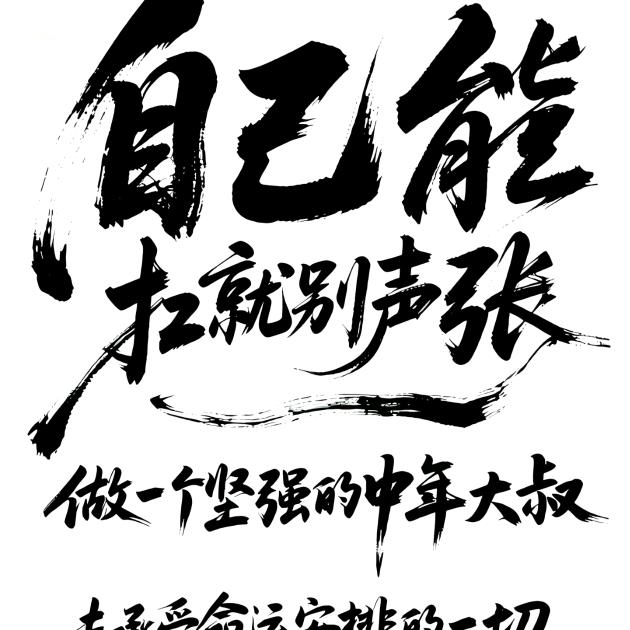 自己能
扛就别声张
做一个坚强的中年大叔
去承受命运安排的一切